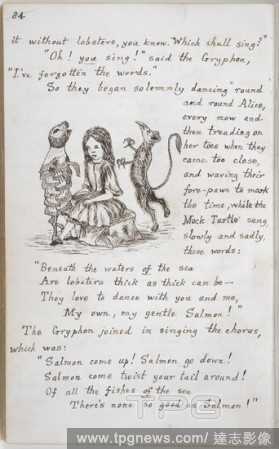 84
it without lobsters, you know. Which shall sing?"
"Oh! you sing!" said the Gryphon,
"I've forgotten the words."
So they began solemnly dancing round
and round Alice,
every now and
then treading on
her toes when they
came too close,
and waving their
fore-paws to mark
the time, while the
Mock Turtle sang
slowly and sadly,
these words:
"Beneath the waters of the sea
Are lobsters thick as thick can be—
They love to dance with you and me,
My own, my gentle Salmon!"
The Gryphon joined in singing the chorus,
which was:
"Salmon come up! Salmon go down!
Salmon come twist your tail around!
Of all the fishes of the sea
There's none so good as Salmon!"
TPG
www.tpgnews.com/達志影像